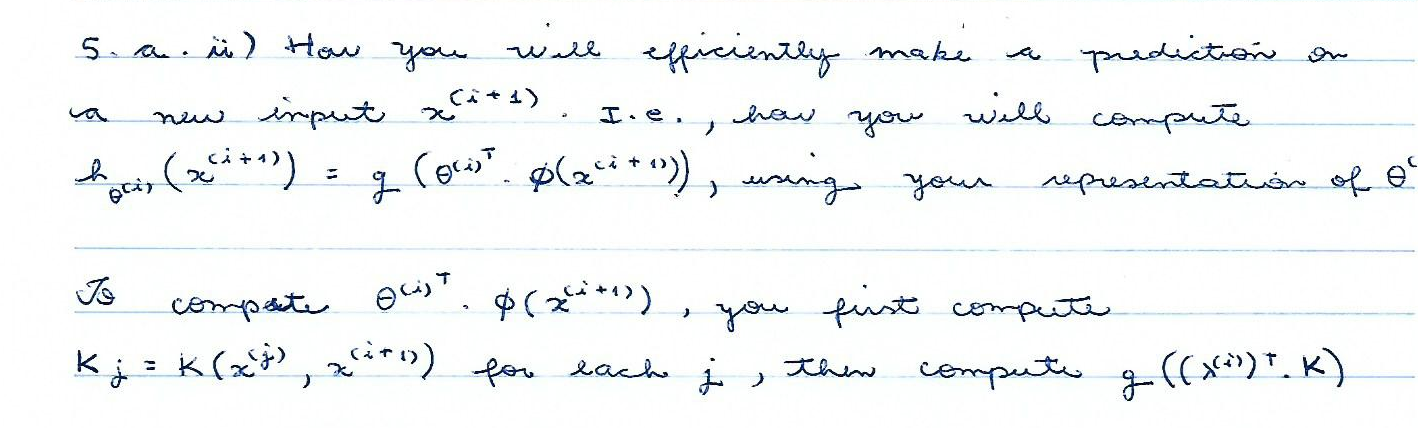 5. a. ii) How you will efficiently make a prediction on
a new input x^(i+1). I.e., how you will compute
h_θ^(i) (x^(i+1)) = g (θ^(i)ᵀ. φ(x^(i+1))), using your representation of θ^(
To compute θ^(i)ᵀ. φ(x^(i+1)), you first compute
K_j = K(x^(j), x^(i+1)) for each j, then compute g((λ^(i))ᵀ. K)